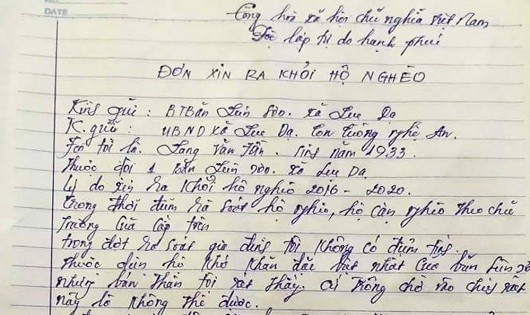 DATE
Cộng hòa xã hội chủ nghĩa Việt Nam
Độc lập tự do hạnh phúc
ĐƠN XIN RA KHỎI HỘ NGHÈO
Kính gửi : BT Bản Lủn xã Lưu Dạ
K. gửi : UBND xã Lưu Dạ. Con Cuông nghệ An.
Tên tôi là. Lang Văn Tần. Sinh năm 1933.
Thuộc đội 1 bản xã Lưu Dạ.
Lý do xin ra khỏi hộ nghèo 2016 - 2020.
Trong thời điểm rà soát hộ nghèo, hộ cận nghèo theo chủ
trương của cấp trên
trong đợt rà soát gia đình tôi không có
thuộc diện hộ khó khăn đặc biệt nhất của bản
nhưng bản thân tôi xét thấy. cứ trông chờ vào
này là không thể được.